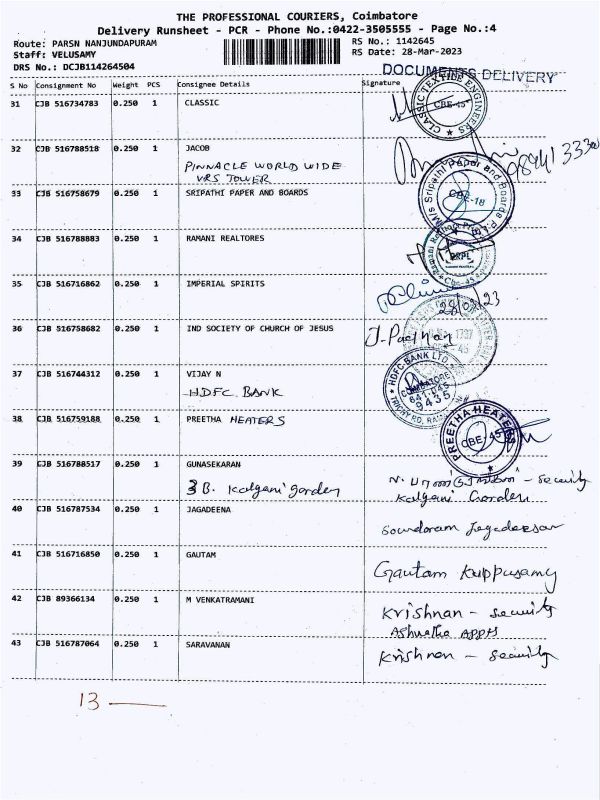 THE PROFESSIONAL COURIERS, Coimbatore
Delivery Runsheet - PCR - Phone No.:0422-3505555 - Page No.:4
Route: PARSN NANJUNDAPURAM
Staff: VELUSAMY
DRS No.: DCJB114264504
RS No.: 1142645
RS Date: 28-Mar-2023
DOCUMENTS DELIVERY
S No Consignment No Weight PCS Consignee Details Signature
31 CJB 516734783 0.250 1 CLASSIC
CLASSIC TEXTILE ENGINEERS CBE-45
32 CJB 516788518 0.250 1 JACOB
PINNACLE WORLD WIDE
VRS TOWER
33 CJB 516758679 0.250 1 SRIPATHI PAPER AND BOARDS
M/s Sripathi Paper and Boards P. Ltd CBE-18
34 CJB 516788883 0.250 1 RAMANI REALTORES
RRPL
35 CJB 516716862 0.250 1 IMPERIAL SPIRITS
36 CJB 516758682 0.250 1 IND SOCIETY OF CHURCH OF JESUS
37 CJB 516744312 0.250 1 VIJAY N
HDFC BANK
HDFC BANK LTD
COIMBATORE
641 045
9435
38 CJB 516759188 0.250 1 PREETHA HEATERS
PREETHA HEATERS CBE-45
39 CJB 516788517 0.250 1 GUNASEKARAN
3 B. Kalyani garden
Security
Kalyani Garden
40 CJB 516787534 0.250 1 JAGADEENA
Soundaram Jagadeesan
41 CJB 516716850 0.250 1 GAUTAM
Gautam Kuppusamy
42 CJB 89366134 0.250 1 M VENKATRAMANI
Krishnan - Security
43 CJB 516787064 0.250 1 SARAVANAN
Krishnan - Security
13